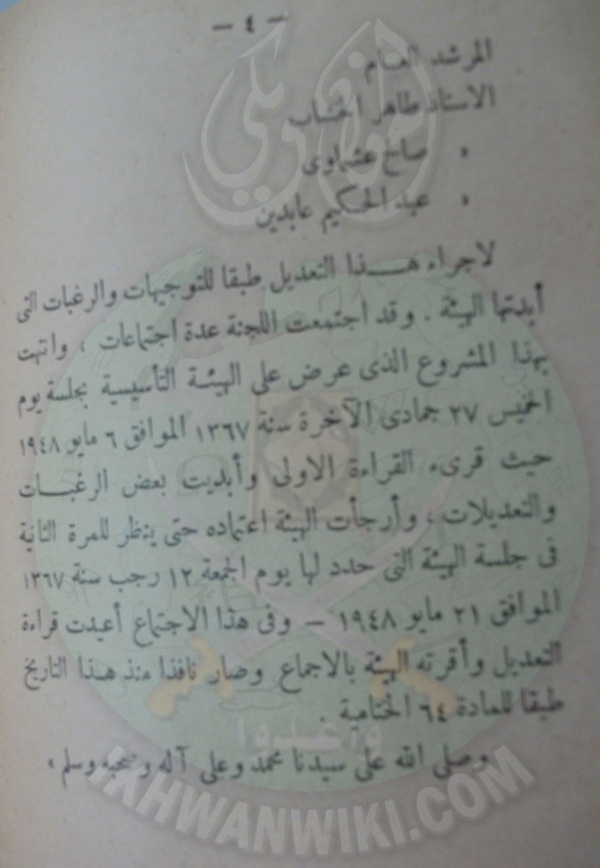 — ٤ —
المرشد العام
الاستاذ طاهر الخشاب
« صالح عشماوى
« عبد الحكيم عابدين
لاجراء هذا التعديل طبقا للتوجيهات والرغبات التى
أبدتها الهيئة . وقد اجتمعت اللجنة عدة اجتماعات ، وانتهت
بهذا المشروع الذى عرض على الهيئة التأسيسية بجلسة يوم
الخميس ٢٧ جمادى الآخرة سنة ١٣٦٧ الموافق ٦ مايو ١٩٤٨
حيث قرىء القراءة الاولى وأبديت بعض الرغبات
والتعديلات ، وأرجأت الهيئة اعتماده حتى ينظر للمرة الثانية
فى جلسة الهيئة التى حدد لها يوم الجمعة ١٢ رجب سنة ١٣٦٧
الموافق ٢١ مايو ١٩٤٨ — وفى هذا الاجتماع أعيدت قراءة
التعديل وأقرته الهيئة بالاجماع وصار نافذا منذ هذا التاريخ
طبقا للمادة ٦٤ الختامية .
وصلى الله على سيدنا محمد وعلى آله وصحبه وسلم ،
إخوان ويكي
وأعدوا
IKHWANWIKI.COM